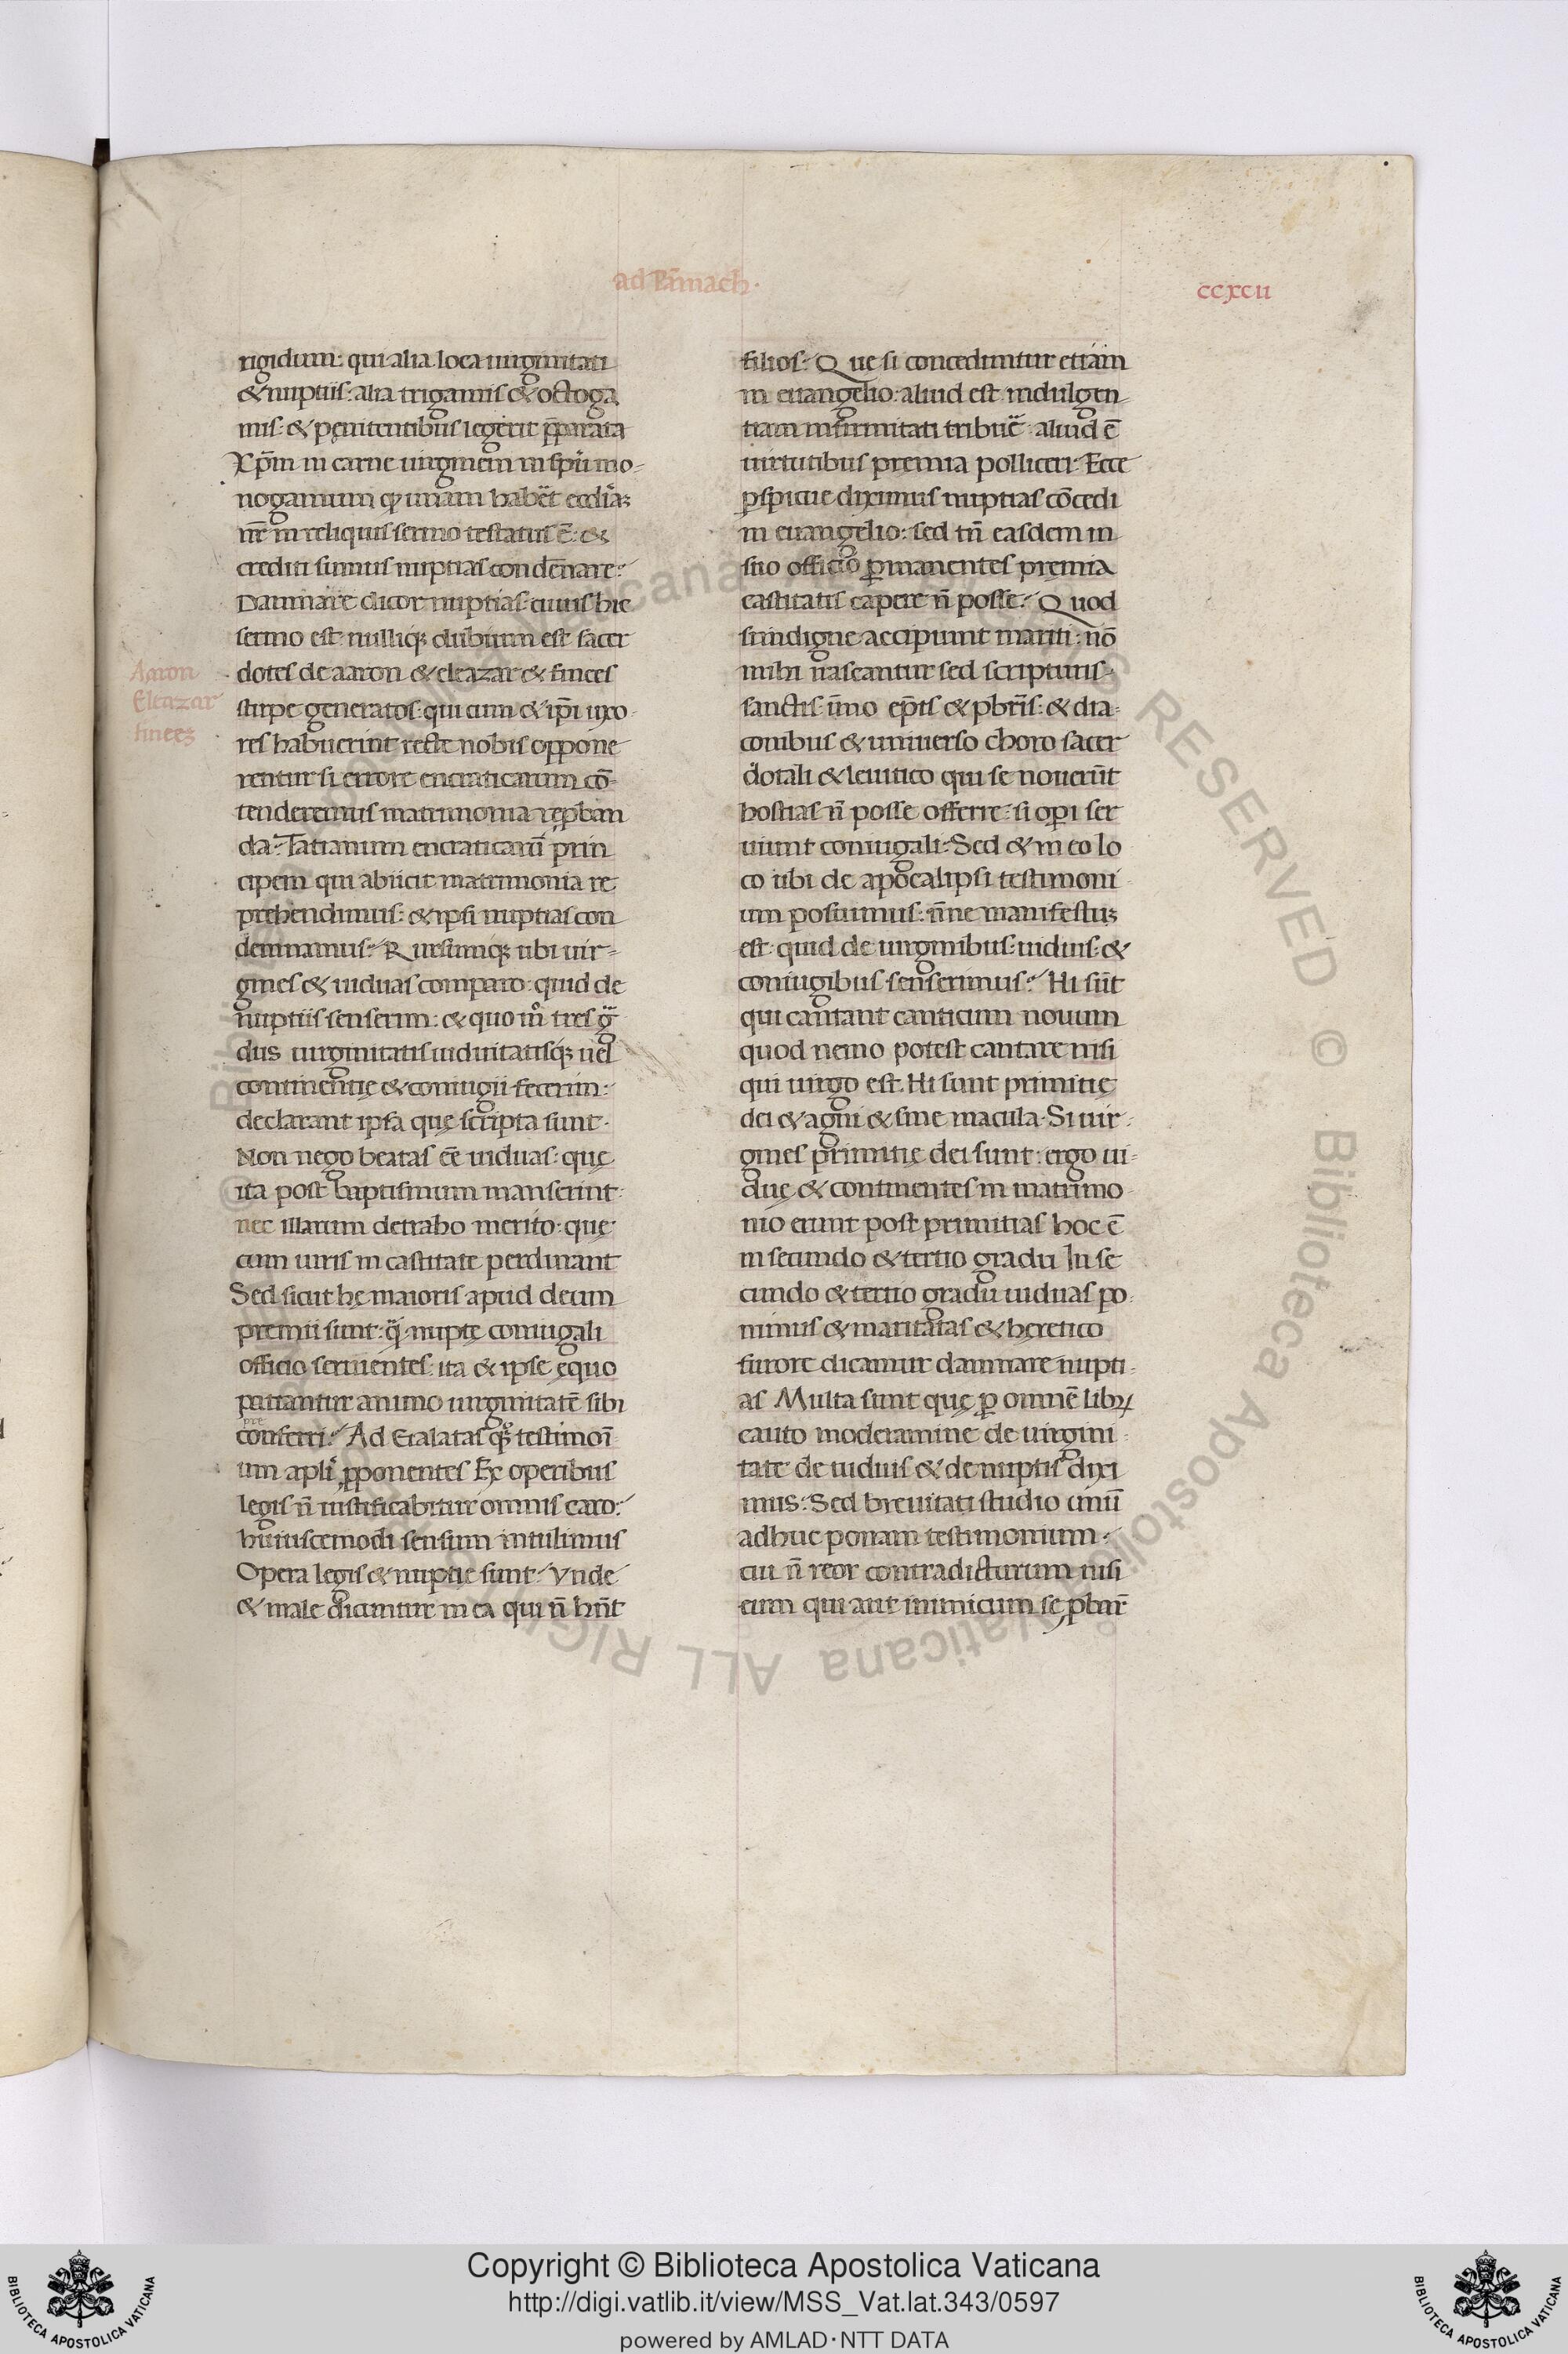 ad Pāmach·
ccxcii
rigidum: qui alia loca uirginitati
& nuptiis: alia trigamis & octoga
mis: & pęnitentibus legerit p̄parata
Xp̄m in carne uirginem in sp̄u mo-
nogamum q; unam habēt ecclīaȝ
nr̄e in reliquis sermo testatus ē: &
credim sumus nuptias condēnare:
Damnare dicor nuptias cuius hic
sermo est: nulliq; dubium est sacer
dotes de aaron & eleazar & finees
stirpe generatos: qui cum & ip̄i uxo-
res habuerint recte nobis oppone
rentur si errore encraticarum cō-
tenderemus matrimonia rep̱ban
da: Tatianum encraticarū prin
cipem qui abiicit matrimonia re
prehendimus: & ipsi nuptias con
demnamus: Rursumq; ubi uir-
gines & uiduas comparo: quid de
nuptiis senserim: & quo m̊ tres g̃
dus uirginitatis uiduitatisq; uel
continentię & coniugii fecerim:
declarant ipsa quę scripta sunt·
Non nego beatas eē uiduas: quę
ita post baptismum manserint:
nec illarum detraho merito: quę
cum uiris in castitate perdurant
Sed sicut hę maioris apud deum
premii sunt: q̃ nuptę coniugali
officio seruientes: ita & ipse ęquo
patiantur animo uirginitatē sibi
pre
conferri: Ad Galatas q̊q; testimoī
um apl̄i p̱ponentes Ex operibus
legis n̄ iustificabitur omnis caro:
huiuscemodi sensum intulimus
Opera legis & nuptię sunt: Vnde
& male dicuntur in ea qui n̄ hn̄t
Aaron
Eleazar
fineeȝ
filios: Quę si conceduntur etiam
in euangelio: aliud est indulgen-
tiam infirmitati tribue̅: aliud ē
uirtutibus premia polliceri: Ecce
ꝑspicue diximus nuptias cōcedi
in euangelio: sed tn̄ easdem in
suo officio ꝑmanentes pręmia
castitatis capere n̄ posse: Quod
si indigne accipiunt mariti: nō
mihi irascantur sed scripturis
sanctis: īmo ep̄is & pbr̄is: & dia-
conibus & uniuerso choro sacer
dotali & leuitico qui se nouerūt
hostias n̄ posse offerre: si op̄i ser
uiunt coniugali: Sed & in eo lo
co ubi de apocalipsi testimoni
um posuimus: n̄ne manifestuȝ
est: quid de uirginibus: uiduis: &
coniugibus senserimus? Hi sūt
qui cantant canticum nouum
quod nemo potest cantare nisi
qui uirgo est. Hi sunt primitię
dei & agni & sine macula. Si uir-
gines primitię dei sunt: ergo ui-
duę & continentes in matrimo
nio erunt post primitias hoc ē
in secundo & tertio gradu In se
cundo & tertio gradu uiduas po-
nimus & maritatas & hęretico
furore dicamur damnare nupti-
as Multa sunt quę ꝑ omnē libꝝ
cauto moderamine de uirgini-
tate de uiduis & de nuptis dixi
mus: Sed breuitati studio unū
adhuc ponam testimonium:
cui n̄ reor contradicturum nisi
eum qui aut inimicum se p̱bar̄
Copyright © Biblioteca Apostolica Vaticana
http://digi.vatlib.it/view/MSS_Vat.lat.343/0597
powered by AMLAD·NTT DATA